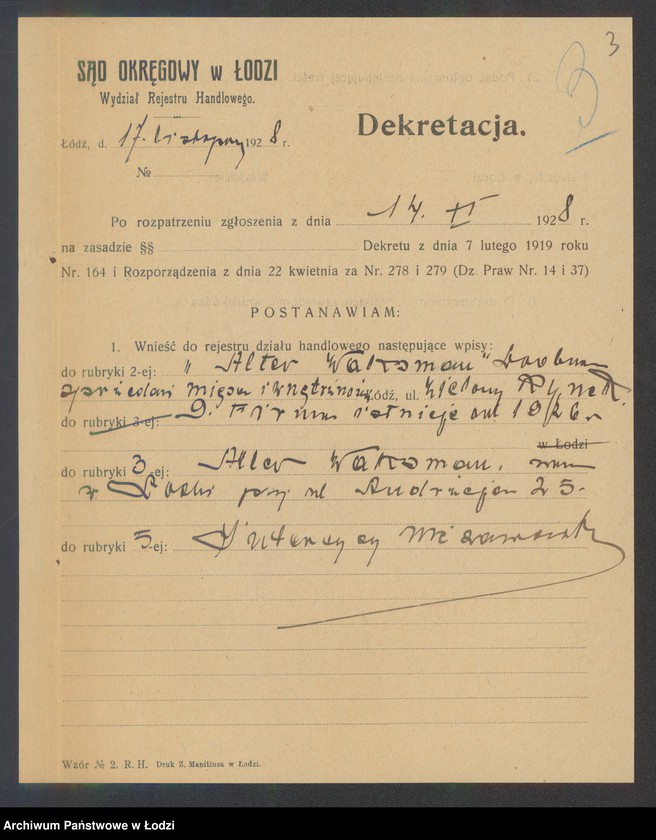 3
3
SĄD OKRĘGOWY w ŁODZI
Wydział Rejestru Handlowego.
Dekretacja.
Łódź, d. 17. listopada 1928 r.
№
Po rozpatrzeniu zgłoszenia z dnia 14. XI 1928 r.
na zasadzie §§ Dekretu z dnia 7 lutego 1919 roku
Nr. 164 i Rozporządzenia z dnia 22 kwietnia za Nr. 278 i 279 (Dz. Praw Nr. 14 i 37)
POSTANAWIAM:
1. Wnieść do rejestru działu handlowego następujące wpisy:
do rubryki 2-ej: „Alter Waksman" Drobna
sprzedaż mięsa i wnętrzności Łódź, ul. Zielony Rynek
do rubryki 3-ej: 9. Firma istnieje od 1926 r
w Łodzi
do rubryki 3-ej: Alter Waksman, zam
w Łodzi przy ul Andrzeja 25.
do rubryki 5-ej: Intercyzy nie zawarł
Wzór № 2. R. H. Druk Z. Manitiusa w Łodzi.
Archiwum Państwowe w Łodzi